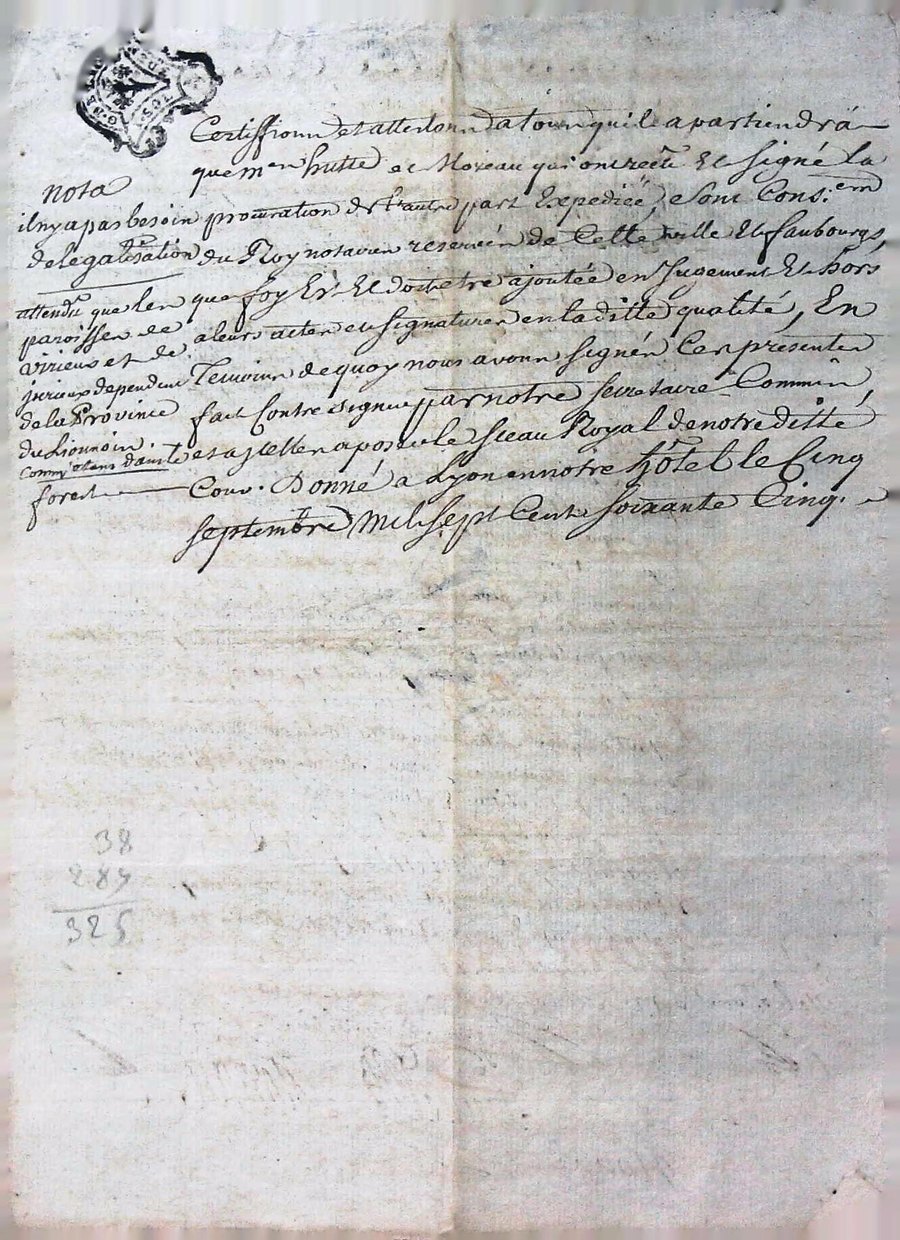 Certiffions et attestons a tous quil apartiendra
que mrs hutte et Moreau qui ont recu Et signé la
procuration de l'autre part Expediée, sont Cons.ers
du Roy notaires reservés de Cette ville Et faubourgs,
que foy Est Et doit etre ajoutée en Jugement Et hors
a leurs actes et signatures en la ditte qualité, En
Temoins de quoy nous avons signés Ces presentes
fait Contre signer par notre secretaire Commis,
et a jcelles aposer le sceau Royal de notre ditte
Cour. Donné a Lyon en notre hôtel le Cinq
septembre Mil sept Cent soixante Cinq.
nota
il ny a pas besoin
de legalisation
attendu que les
paroisses de
virieux et de
jurieux dependent
de la Province
du Lionnois.
forest
38
287
325